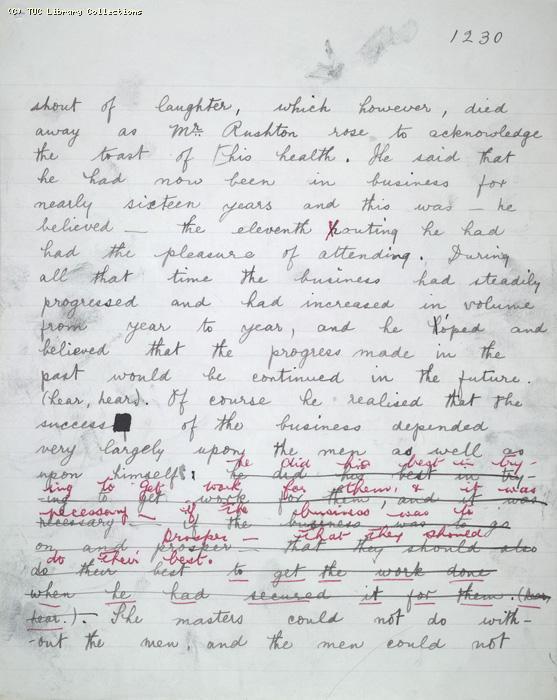 (C) TUC Library Collections
1230
shout of laughter, which however, died
away as Mr. Rushton rose to acknowledge
the toast of his health. He said that
he had now been in business for
nearly sixteen years and this was — he
believed — the eleventh outing he had
had the pleasure of attending. During
all that time the business had steadily
progressed and had increased in volume
from year to year, and he hoped and
believed that the progress made in the
past would be continued in the future.
(hear, hear). Of course he realised that the
success of the business depended
very largely upon the men as well as
he did his best in try-
upon himself: he did his best in try-
ing to get work for them, & it was
-ing to get work for them, and it was
necessary — if the business was to
necessary — if the business was to go
prosper — that they should
on and prosper — that they should also
do their best.
do their best to get the work done
when he had secured it for them. (hear,
hear.). The masters could not do with-
-out the men, and the men could not